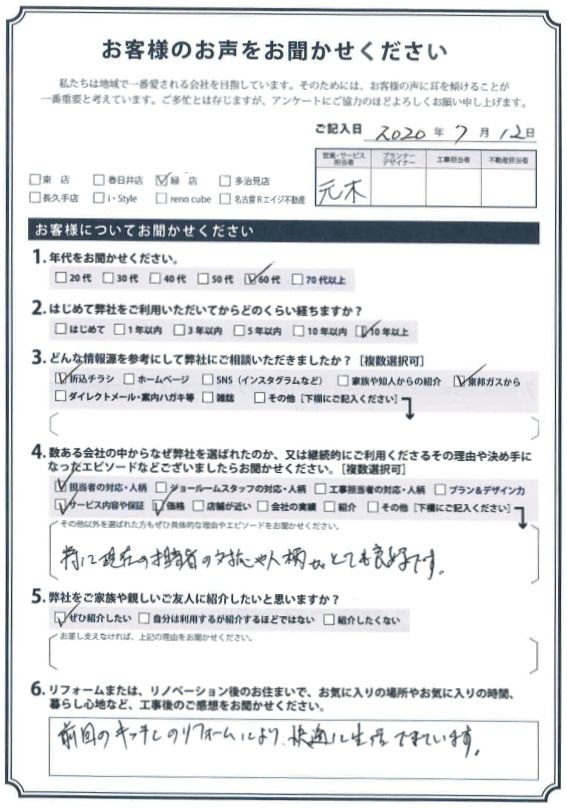 お客様のお声をお聞かせください
私たちは地域で一番愛される会社を目指しています。そのためには、お客様の声に耳を傾けることが
一番重要と考えています。ご多忙とは存じますが、アンケートにご協力のほどよろしくお願い申し上げます。
ご記入日 2020 年 7 月 12 日
営業・サービス担当者 プランナーデザイナー 工事担当者 不動産担当者
元木
□東 店 □春日井店 ☑緑 店 □多治見店
□長久手店 □i・Style □reno cube □名古屋Rエイジ不動産
お客様についてお聞かせください
1. 年代をお聞かせください。
□20代 □30代 □40代 □50代 ☑60代 □70代以上
2. はじめて弊社をご利用いただいてからどのくらい経ちますか？
□はじめて □1年以内 □3年以内 □5年以内 □10年以内 ☑10年以上
3. どんな情報源を参考にして弊社にご相談いただきましたか？［複数選択可］
☑折込チラシ □ホームページ □SNS（インスタグラムなど） □家族や知人からの紹介 ☑東邦ガスから
□ダイレクトメール・案内ハガキ等 □雑誌 □その他［下欄にご記入ください］
4. 数ある会社の中からなぜ弊社を選ばれたのか、又は継続的にご利用くださるその理由や決め手に
なったエピソードなどございましたらお聞かせください。［複数選択可］
☑担当者の対応・人柄 □ショールームスタッフの対応・人柄 □工事担当者の対応・人柄 □プラン＆デザイン力
☑サービス内容や保証 ☑価格 □店舗が近い □会社の実績 □紹介 □その他［下欄にご記入ください］
その他以外を選ばれた方もぜひ具体的な理由やエピソードをお聞かせください。
特に現在の担当者の対応や人柄がとても良好です。
5. 弊社をご家族や親しいご友人に紹介したいと思いますか？
☑ぜひ紹介したい □自分は利用するが紹介するほどではない □紹介したくない
お差し支えなければ、上記の理由をお聞かせください。
6. リフォームまたは、リノベーション後のお住まいで、お気に入りの場所やお気に入りの時間、
暮らし心地など、工事後のご感想をお聞かせください。
前回のキッチンのリフォームにより、快適に生活できています。